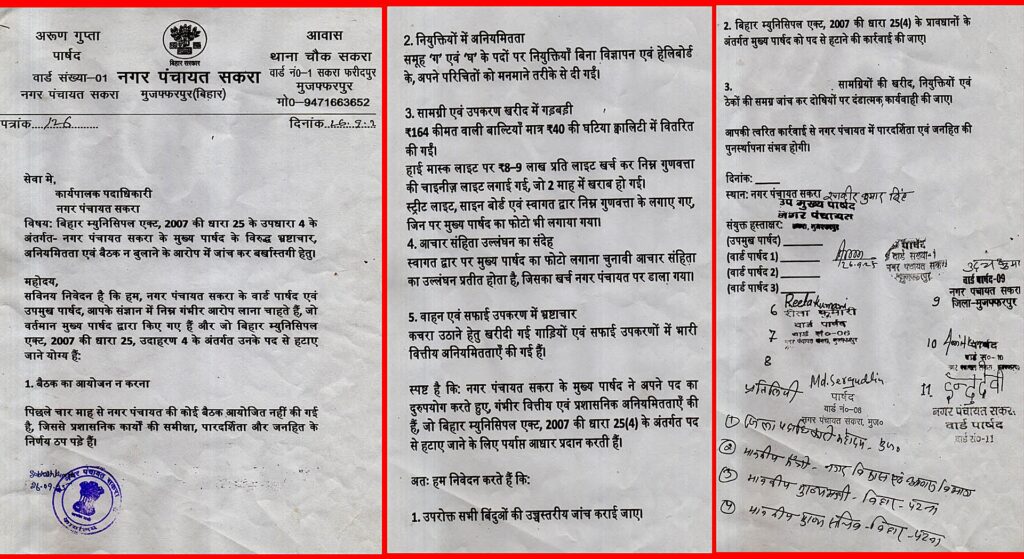 अरूण गुप्ता
पार्षद
वार्ड संख्या-01
नगर पंचायत सकरा
बिहार सरकार
नगर पंचायत सकरा
मुजफ्फरपुर(बिहार)
आवास
थाना चौक सकरा
वार्ड नं०-1 सकरा फरीदपुर
मुजफ्फरपुर
मो0-9471663652
पत्रांक 126
दिनांक
सेवा मे,
कार्यपालक पदाधिकारी
नगर पंचायत सकरा
विषय: बिहार म्युनिसिपल एक्ट, 2007 की धारा 25 के उपधारा 4 के
अंतर्गत- नगर पंचायत सकरा के मुख्य पार्षद के विरुद्ध भ्रष्टाचार,
अनियमितता एवं बैठक न बुलाने के आरोप में जांच कर बर्खास्तगी हेतु।
महोदय,
सविनय निवेदन है कि हम, नगर पंचायत सकरा के वार्ड पार्षद एवं
उपमुख पार्षद, आपके संज्ञान में निम्न गंभीर आरोप लाना चाहते हैं, जो
वर्तमान मुख्य पार्षद द्वारा किए गए हैं और जो बिहार म्युनिसिपल
एक्ट, 2007 की धारा 25, उदाहरण 4 के अंतर्गत उनके पद से हटाए
जाने योग्य हैं:
1. बैठक का आयोजन न करना
पिछले चार माह से नगर पंचायत की कोई बैठक आयोजित नहीं की गई
है, जिससे प्रशासनिक कार्यों की समीक्षा, पारदर्शिता और जनहित के
निर्णय ठप पड़े हैं।
नगर पंचायत सकरा
कार्यालय
2. नियुक्तियों में अनियमितता
समूह 'ग' एवं 'घ' के पदों पर नियुक्तियाँ बिना विज्ञापन एवं हेलिबोर्ड
के, अपने परिचितों को मनमाने तरीके से दी गईं।
3. सामग्री एवं उपकरण खरीद में गड़बड़ी
₹164 कीमत वाली बाल्टियाँ मात्र ₹40 की घटिया क्वालिटी में वितरित
की गईं।
हाई मास्क लाइट पर ₹8-9 लाख प्रति लाइट खर्च कर निम्न गुणवत्ता
की चाइनीज़ लाइट लगाई गई, जो 2 माह में खराब हो गई।
स्ट्रीट लाइट, साइन बोर्ड एवं स्वागत द्वार निम्न गुणवत्ता के लगाए गए,
जिन पर मुख्य पार्षद का फोटो भी लगाया गया।
4. आचार संहिता उल्लंघन का संदेह
स्वागत द्वार पर मुख्य पार्षद का फोटो लगाना चुनावी आचार संहिता
का उल्लंघन प्रतीत होता है, जिसका खर्च नगर पंचायत पर डाला गया।
5. वाहन एवं सफाई उपकरण में भ्रष्टाचार
कचरा उठाने हेतु खरीदी गई गाड़ियों एवं सफाई उपकरणों में भारी
वित्तीय अनियमितताएँ की गई हैं।
स्पष्ट है कि: नगर पंचायत सकरा के मुख्य पार्षद ने अपने पद का
दुरुपयोग करते हुए, गंभीर वित्तीय एवं प्रशासनिक अनियमितताएँ की
हैं, जो बिहार म्युनिसिपल एक्ट, 2007 की धारा 25(4) के अंतर्गत पद
से हटाए जाने के लिए पर्याप्त आधार प्रदान करती हैं।
अतः हम निवेदन करते हैं कि:
1. उपरोक्त सभी बिंदुओं की उच्चस्तरीय जांच कराई जाए।
2. बिहार म्युनिसिपल एक्ट, 2007 की धारा 25(4) के प्रावधानों के
अंतर्गत मुख्य पार्षद को पद से हटाने की कार्रवाई की जाए।
3. सामग्रियों की खरीद, नियुक्तियों एवं
ठेकों की समग्र जांच कर दोषियों पर दंडात्मक कार्यवाही की जाए।
आपकी त्वरित कार्रवाई से नगर पंचायत में पारदर्शिता एवं जनहित की
पुनर्स्थापना संभव होगी।
दिनांक:
स्थान: नगर पंचायत सकरा रनवीर कुमार सिंह
उप मुख्य पार्षद
नगर पंचायत
संयुक्त हस्ताक्षर:
(उपमुख पार्षद)
(वार्ड पार्षद 1)
(वार्ड पार्षद 2)
(वार्ड पार्षद 3)
26.9.25
पार्षद
वार्ड संख्या-1
नगर पंचायत सकरा
वार्ड पार्षद-09
नगर पंचायत सकरा
9 जिला-मुजफ्फरपुर
6 Reeta Kumari
रीता कुमारी
वार्ड पार्षद
7 वार्ड सं०-06
नगर पंचायत सकरा, मुजफ्फरपुर
8
10
वार्ड सं०-10
Md. Serajuddin
पार्षद
वार्ड नं०-08
नगर पंचायत सकरा, मुज०
11 इन्दु देवी
नगर पंचायत सकरा
वार्ड पार्षद
वार्ड नं०-11
प्रतिलिपी
1 जिला पदाधिकारी महोदय - मुज०
2 माननीय मंत्री - नगर विकास एवं आवास विभाग
3 माननीय मुख्यमंत्री - बिहार - पटना
4 माननीय मुख्य सचिव - बिहार - पटना